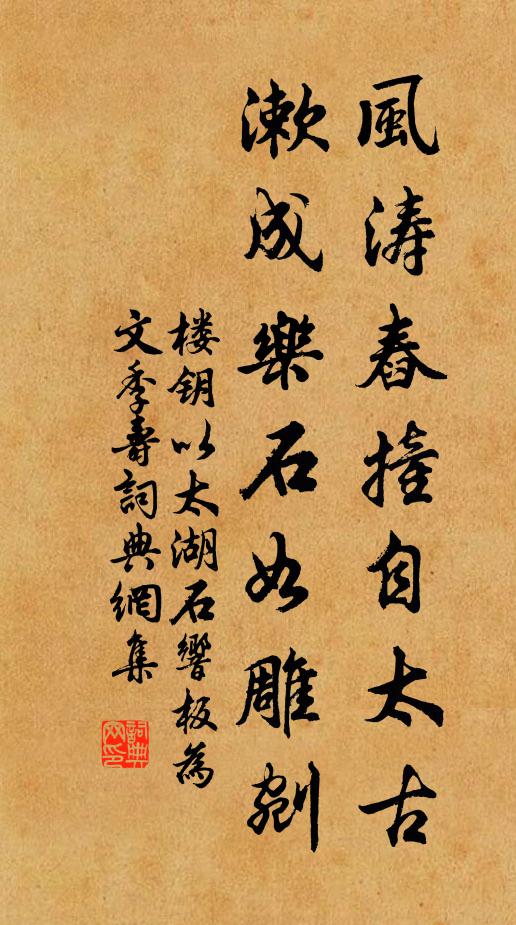 風涛舂撞自太古
漱成樂石如雕剜
楼钥以太湖石響板為
文季壽詞典網集
詞典
网印